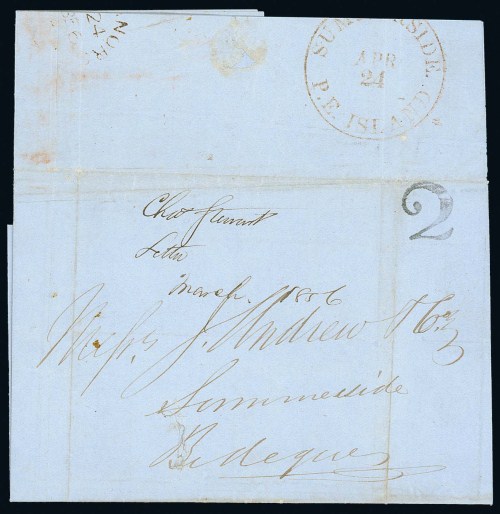 SUMMERSIDE.
APR
24
P.E. ISLAND
24
2
Chas Stewart
Letter
March 1856
Messrs J. Andrew & Co.
Summerside
Bedeque